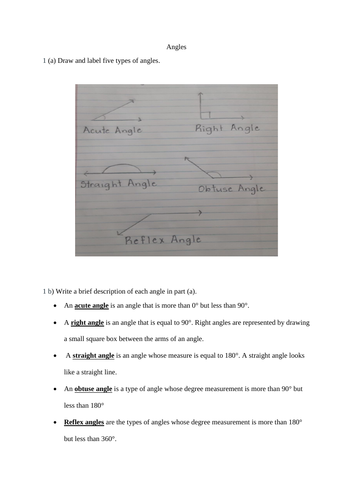 Angles
1 (a) Draw and label five types of angles.
Acute Angle
Right Angle
Straight Angle
Obtuse Angle
Reflex Angle
1 b) Write a brief description of each angle in part (a).
• An acute angle is an angle that is more than 0° but less than 90°.
• A right angle is an angle that is equal to 90°. Right angles are represented by drawing
a small square box between the arms of an angle.
• A straight angle is an angle whose measure is equal to 180°. A straight angle looks
like a straight line.
• An obtuse angle is a type of angle whose degree measurement is more than 90° but
less than 180°
• Reflex angles are the types of angles whose degree measurement is more than 180°
but less than 360°.